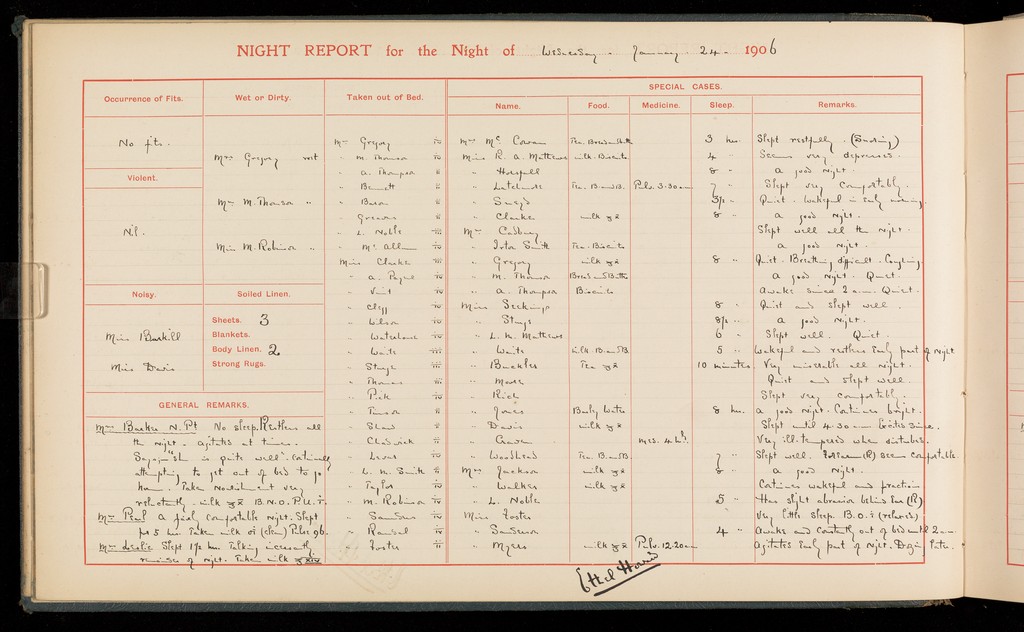 NIGHT REPORT for the Night of Wednesday . January . 24 - 1906
Occurrence of Fits.
No fits.
Violent.
Nil.
Noisy.
Miss Buskill
Miss Davis
Wet or Dirty.
Mrs Gregory wet
Mrs M. Thomson "
Miss M. Robinson "
Soiled Linen.
Sheets. 3
Blankets.
Body Linen. 2
Strong Rugs.
GENERAL REMARKS.
Mrs Barker N. Pt No sleep. Restless all
the night. agitated at times.
Says "she is quite well". Continually
attempting to get out of bed to go
home. Taken nourishment very
reluctantly, milk B.N.O. P.U.
Mrs Peal a fairly comfortable night. Slept
for 5 hrs. Taken milk Pulse 96.
Mrs Leslie Slept 1½ hrs. Talking incessantly
remainder of night. Taken milk
Taken out of Bed.
Mrs Gregory iv
" M. Thomson iv
" A. Thompson ii
" Bennett ii
" Bacon ii
" Greaves ii
" L. Noble iii
" McAllum iv
Miss Clarke iii
" A. Payne iv
" Vint iv
" Clegg iv
" Wilson iv
" Waterhouse iv
" Waite iii
" Sturge iv
" Thomas ii
" Peek iv
" Tuson ii
" Shaw ii
" Chadwick ii
" Lucas iv
" L. M. Smith ii
" Taylor iv
" M. Robinson iv
" Saunders iv
" Ramsal iv
" Foster ii
SPECIAL CASES.
Name. Food. Medicine. Sleep. Remarks.
Mrs McCowan Tea. Bread & Butter 3 hrs. Slept restfully. (Snoring)
Miss R. A. Mathews milk. Biscuits 4 " Seems very depressed.
" Horsfall 8 " a good night.
" Latchmore Tea. B. and B. Pulv. 3.30 am 7 " Slept very comfortably.
" 3½ " Quiet. Wakeful in early morning.
" Clarke milk 8 " a good night.
Mrs Cadbury Slept well all the night.
" Irton Smith Tea. Biscuits a good night.
" Gregory milk 8 " Quiet. Breathing difficult. Coughing.
" M. Thomson Bread and Butter a good night. Quiet.
" A. Thompson Biscuits Awake since 2 a.m. Quiet.
Miss Seckings 8 " Quiet and slept well.
" Sturge 8½ " a good night.
" L. M. Mathews 6 " Slept well. Quiet.
" Waite milk. B. and B. 5 " Wakeful and restless early part of night
" Buckles Tea 10 minutes Very miserable all night.
" Moore Quiet and slept well.
" Rich Slept very comfortably.
" Jones Barley Water 8 hrs. a good night. Continues bright.
" Davis milk Slept until 4.30 am Excited since.
" Craven Meds. 4 Very ill tempered when disturbed.
" Woodhead Tea. B. and B. 7 " Slept well. (R) seem comfortable.
Mrs Jackson milk 8 " a good night.
" Walker milk Continues wakeful and fractious
" L. Noble 5 " Has slight abrasion behind Ear (R)
Miss Foster Very little sleep. B.O. (relaxed)
" Sanderson 4 " Awake and constantly out of bed until 2 am.
" Myers milk Pulv. 12.20am agitated early part of night. Dozing later.
Ethel Howard